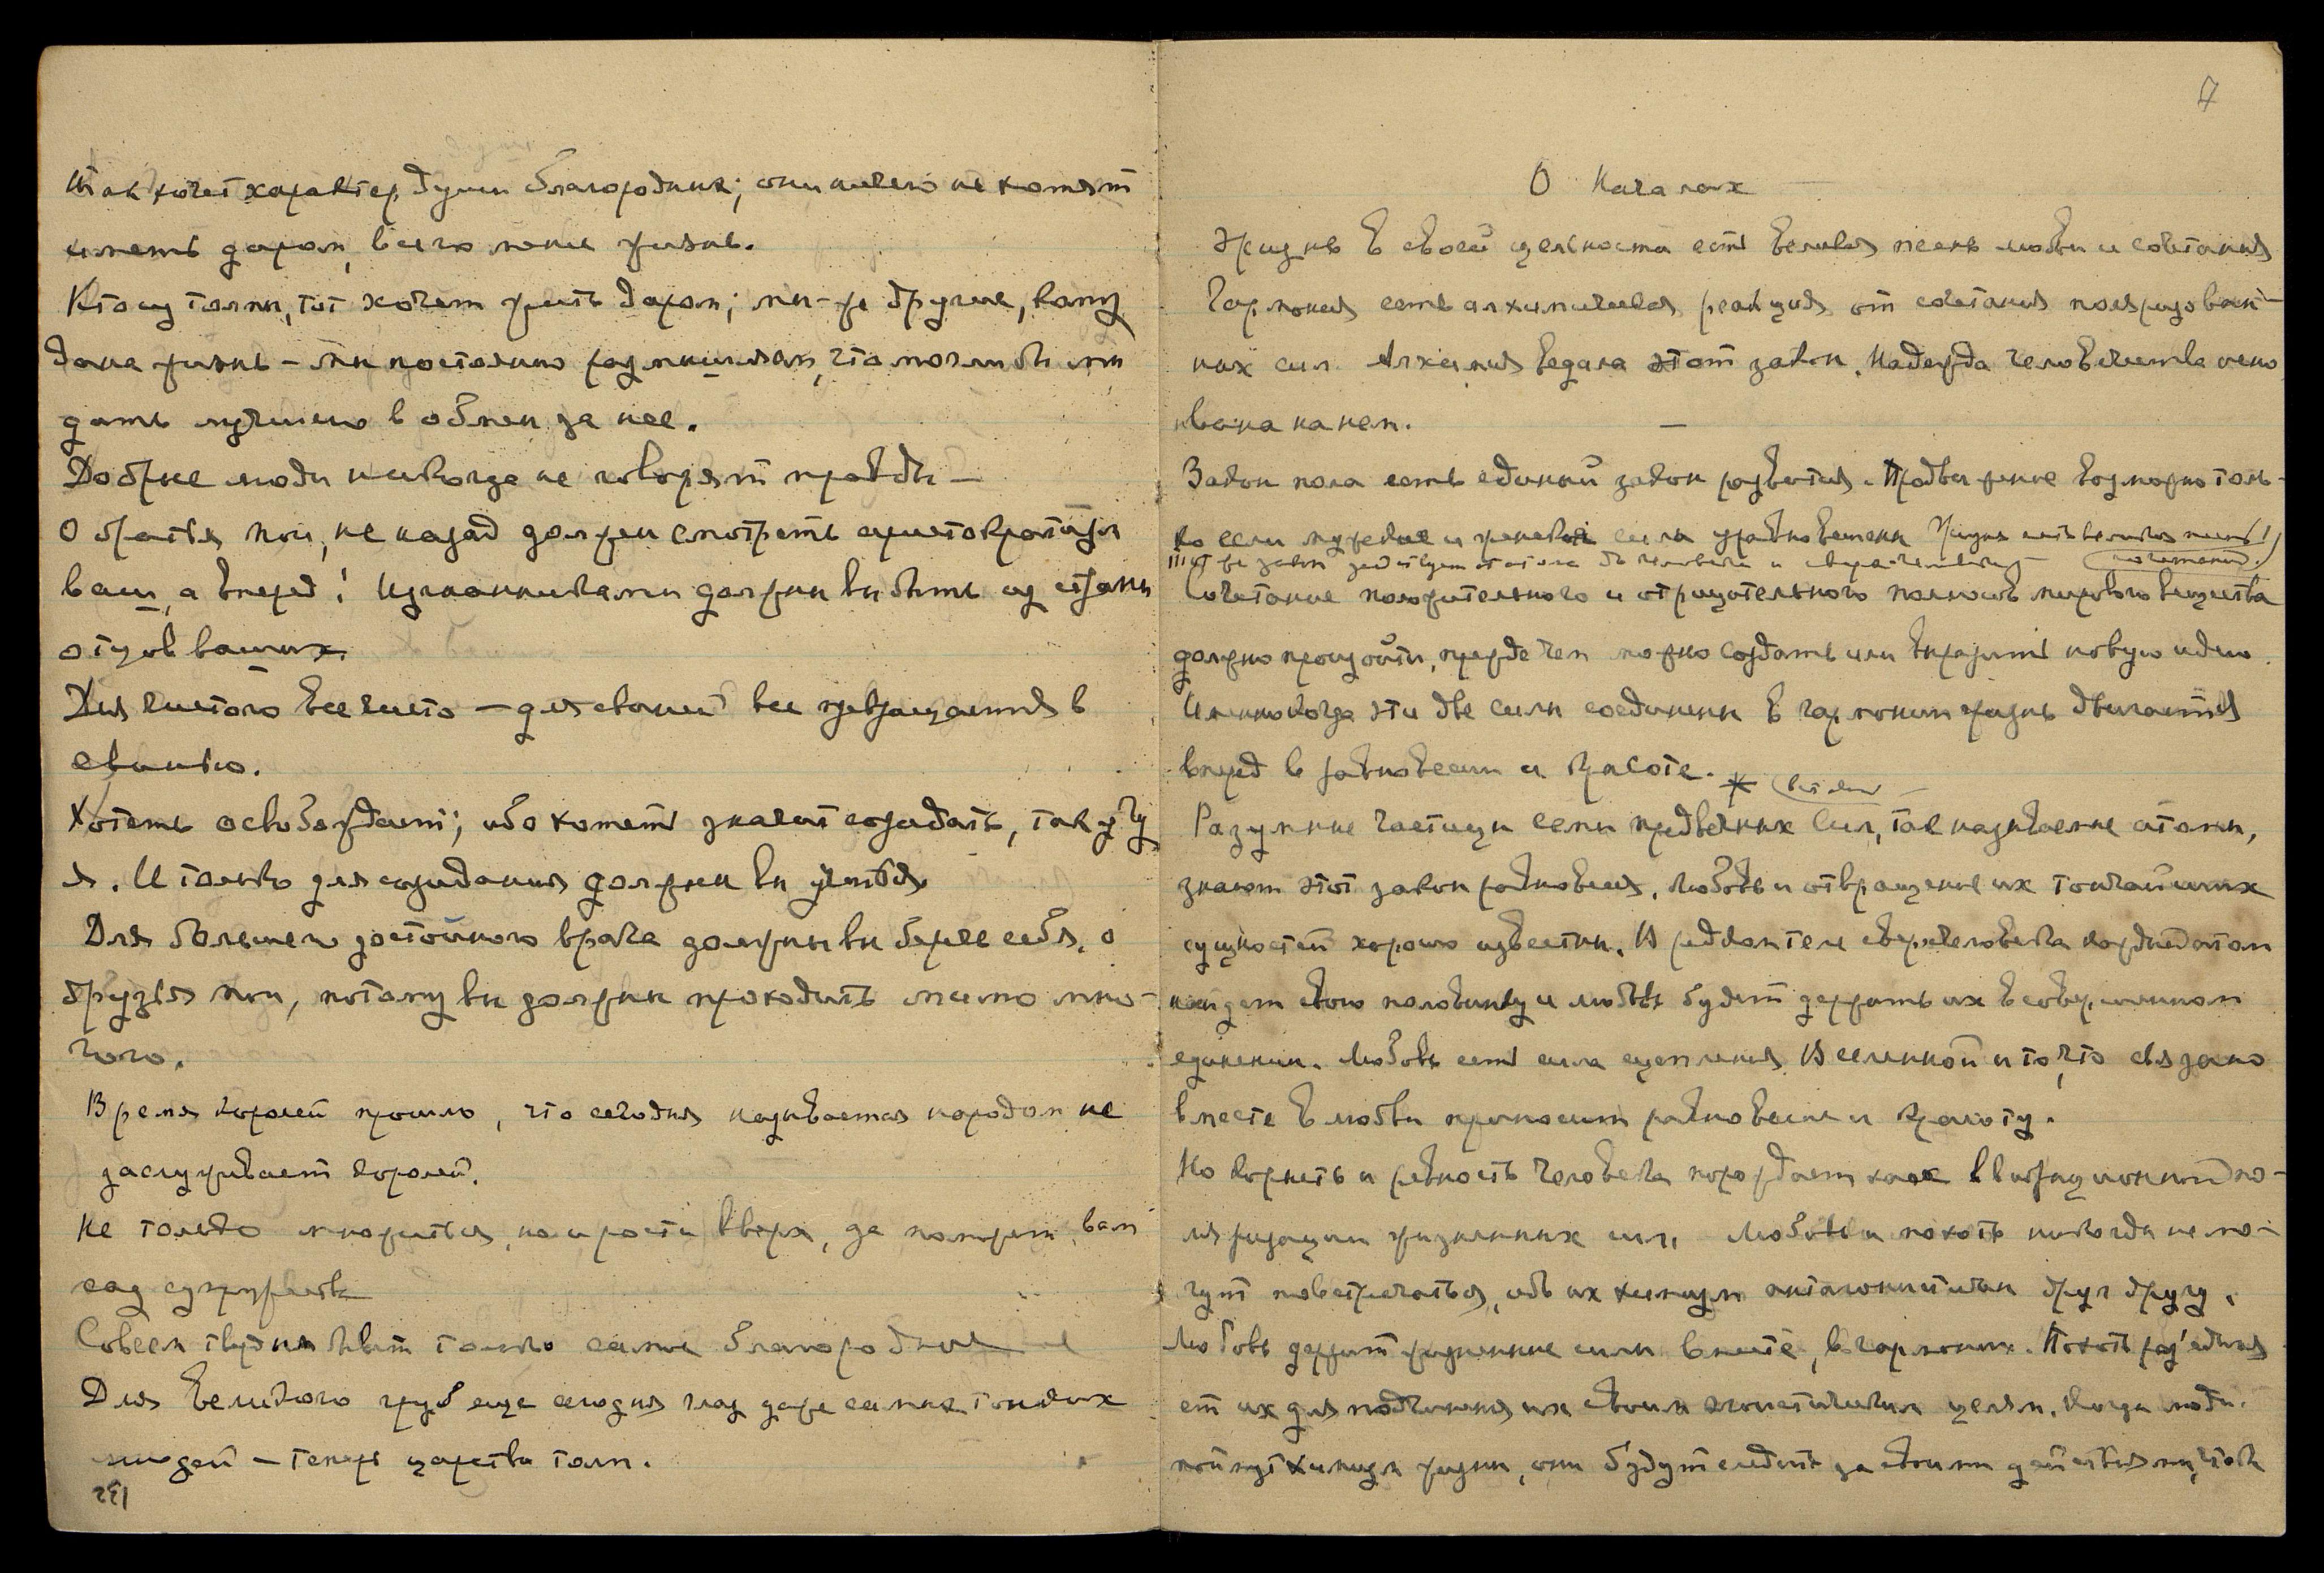 Так хочет характер душ благородных; они ничего не хотят
иметь даром, всего менее жизнь.
Кто из толпы, тот хочет жить даром; мы-же другие, кому
дана жизнь – мы постоянно размышляем, что могли бы мы
дать лучшего в обмен за нее.
Добрые люди никогда не говорят правды –
О братья мои, не назад должен смотреть аристократизм
ваш, а вперед! Изгнанниками должны вы быть из страны
отцов ваших.
Для чистого все чисто – для свиней все превращается в
свинью.
Хотеть освобождает; ибо хотеть значит созидать, так учу
я. И только для созидания должны вы учиться
Для большего достойного врага должны вы беречь себя, о
друзья мои, потому вы должны проходить мимо мно-
гого.
Время королей прошло, что сегодня называется народом не
заслуживает королей.
Не только множиться, но и расти вверх, да поможет вам
сад супружества
Совсем твердым бывает только самое благородное
Для великого груб еще сегодня глаз даже самых тонких
людей – теперь царство толп.
132
7
О Началах
Жизнь в своей цельности есть великая песнь любви и сочетания
Гармония есть алхимическая реакция от сочетания поляризован-
ных сил. Алхимия ведала этот закон. Надежда человечества осно
вана на нем. –
Закон пола есть единый закон развития. Продвижение возможно толь-
ко если мужские и женские силы уравновешены Жизнь есть великая песнь
Этот же закон действует от атома до человека и сверхчеловека – сочетаний.
Сочетание положительного и отрицательного полюсов мирового вещества
должно произойти, прежде чем можно создать или выразить новую идею.
Именно когда эти две силы соединены в гармонии жизнь двигается
вперед в равновесии и красоте. *
Разумные частицы семи предвечных Сил, так называемые атомы,
знают этот закон равновесия. Любовь и отвращение их тончайших
сущностей хорошо известны. В редком теле сверхчеловека каждый атом
найдет свою половинку и любовь будет держать их в совершенном
единении. Любовь есть сила сцепления Вселенной и то, что связано
вместе в любви приносит равновесие и красоту.
Но корысть и ревность человека порождает хаос в вибрационной по-
ляризации жизненных сил. Любовь и похоть никогда не мо-
гут повстречаться, ибо их химизм антагонистичен друг другу.
Любовь держит жизненные силы вместе, в гармонии. Похоть раз'единя
ет их для подчинения их своим эгоистическим целям. Когда люди
поймут химизм жизни, они будут следить за своими действиями, чтобы